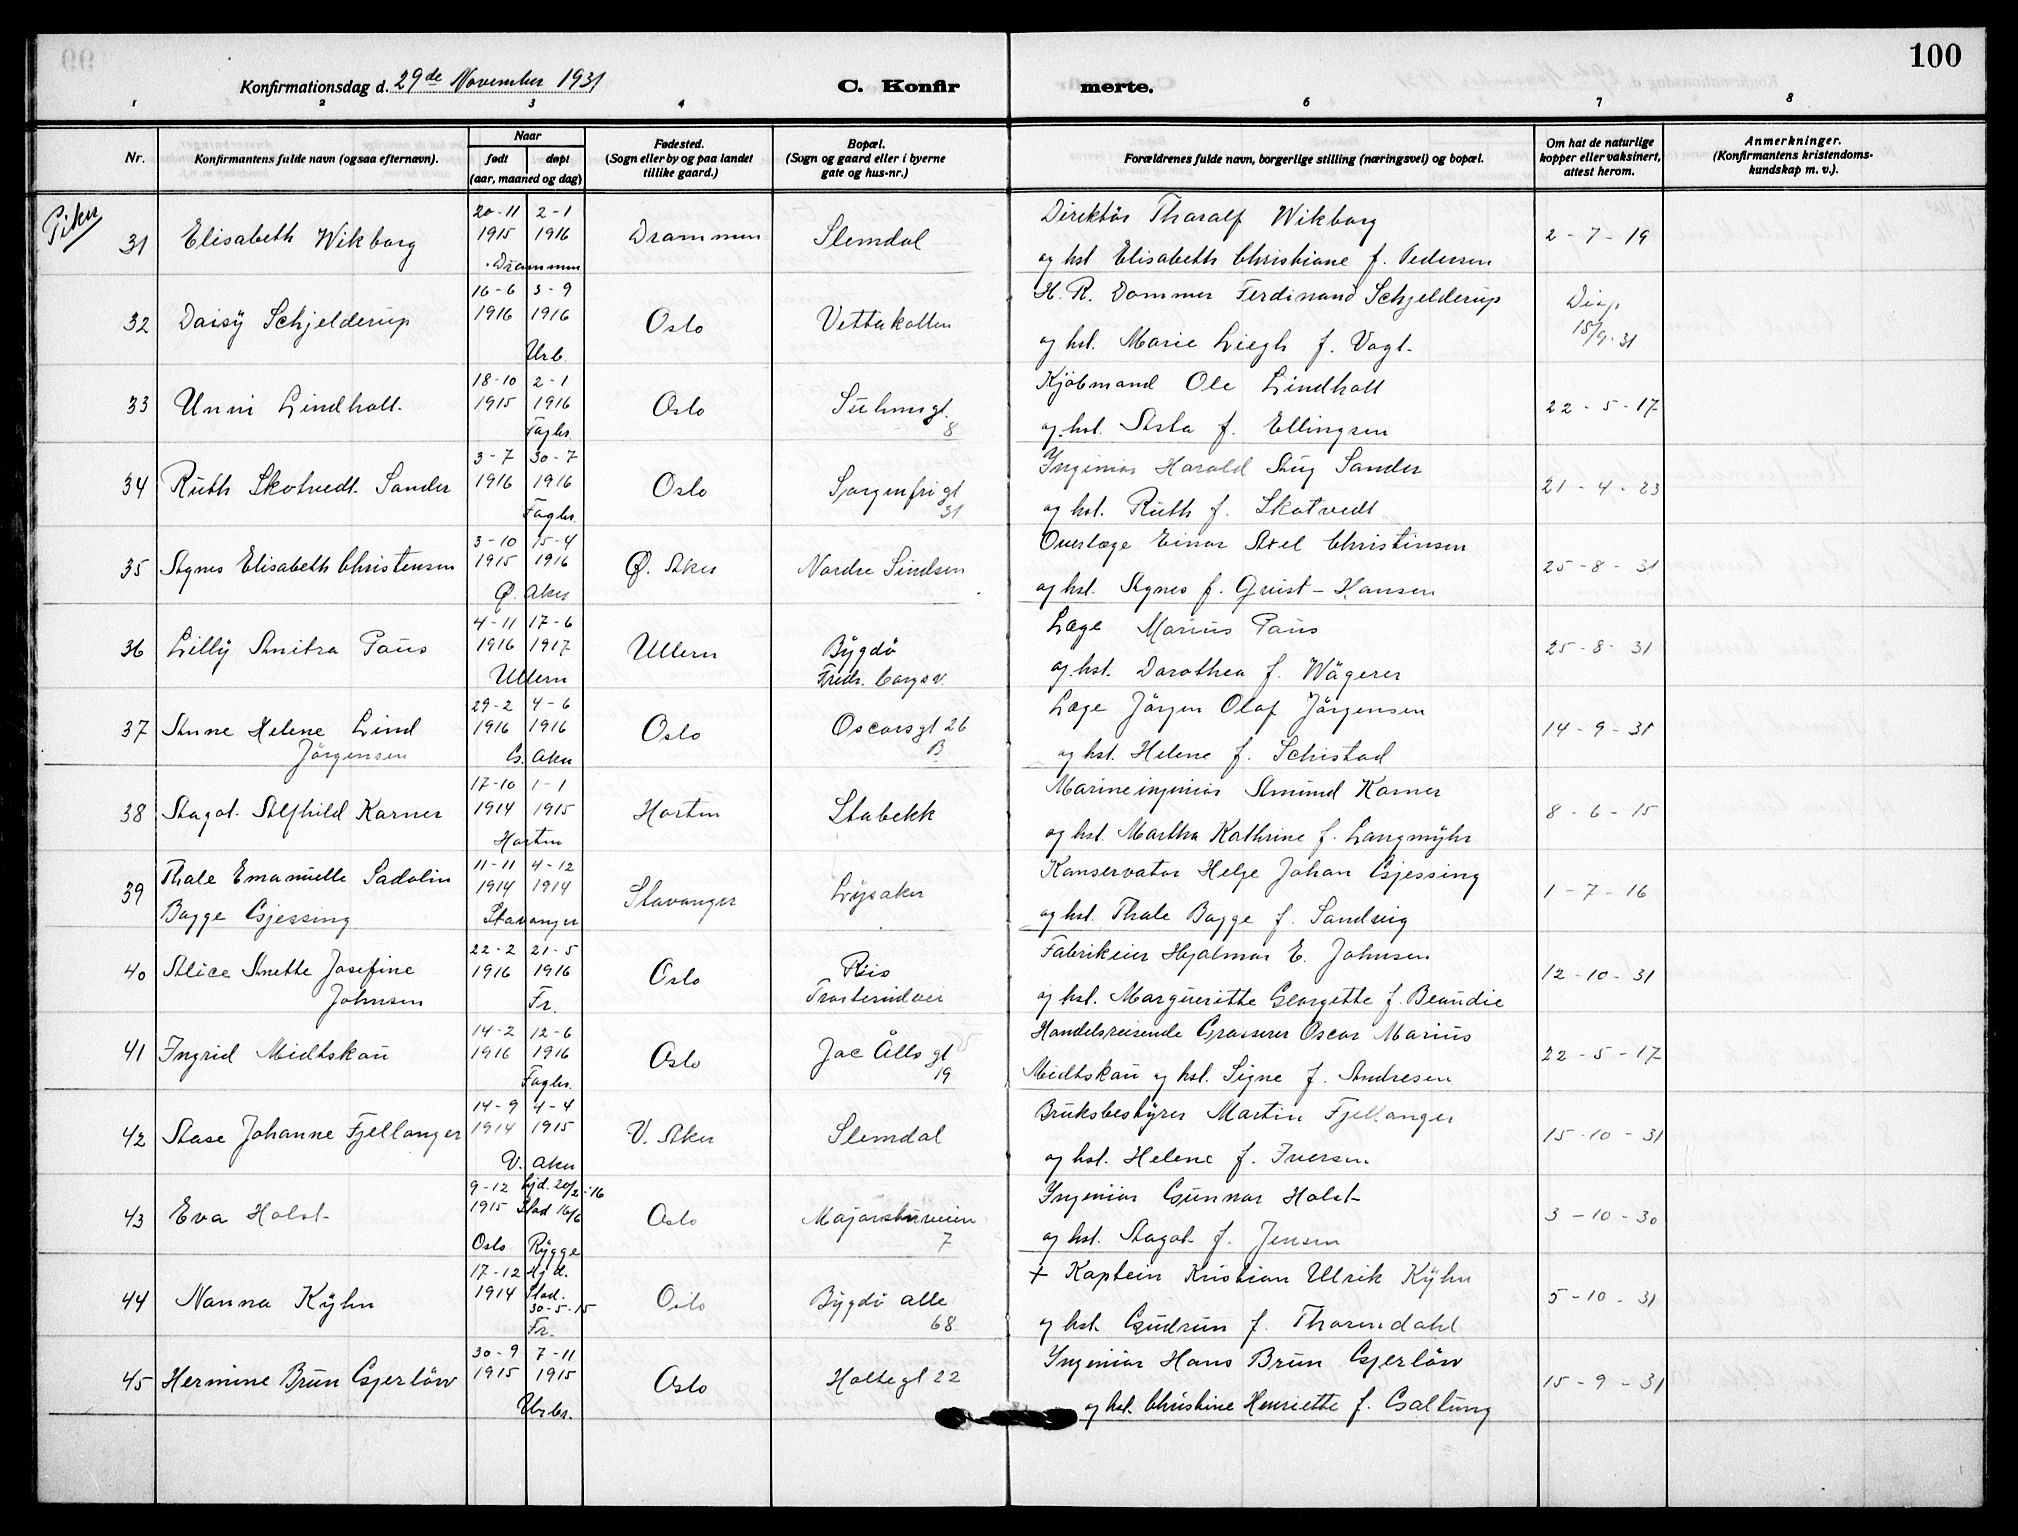 100
Konfirmationsdag d. 29de November 1931
C. Konfirmerte.
1 2 3 4 6 7 8
Nr.
Konfirmantens fulde navn (ogsaa efternavn).
Naar
født døpt
(aar, maaned og dag)
Fødested.
(Sogn eller by og paa landet
tillike gaard.)
Bopæl.
(Sogn og gaard eller i byerne
gate og hus-nr.)
Forældrenes fulde navn, borgerlige stilling (næringsvei) og bopæl.
Om hat de naturlige
kopper eller vaksinert,
attest herom.
Anmerkninger.
(Konfirmantens kristendoms-
kundskap m. v.).
Piker
20-11 2-1 Direktör Tharalf Wikborg
31 Elisabeth Wikborg 1915 1916 Drammen Slemdal 2-7-19
Drammen og hst Elisabeth Christiane f. Pedersen
16-6 3-9 H. R. Dommer Ferdinand Schjelderup
32 Daisy Schjelderup 1916 1916 Oslo Vettakollen Disp 15/9-31
Urb. og hst. Marie Liegh f. Vogt-
18-10 2-1 Kjöbmand Ole Lindholt
33 Unni Lindholt. 1915 1916 Oslo Suhmsgt. 8 22-5-17
Fagbr. og hst. Asta f. Ellingsen
3-7 30-7 Ingeniör Harald Stig Sander
34 Ruth Skotvedt. Sander 1916 1916 Oslo Sorgenfrigt 31 21-4-23
Fagbr. og hst. Ruth f. Skotvedt
3-10 15-4 Overlæge Einar Axel Christensen
35 Agnes Elisabeth Christensen 1915 1916 Ø. Aker Nordre Sindsen 25-8-31
Ø. Aker og hst. Agnes f. Quist-Hansen
4-11 17-6 Læge Marius Paus
36 Lilly Anitra Paus 1916 1917 Ullern Bygdö 25-8-31
Ullern Fredr. Borgsv. og hst. Dorothea f. Wägerer
29-2 4-6 Læge Jörgen Olaf Jörgensen
37 Anne Helene Lind 1916 1916 Oslo Oscarsgt 26 14-9-31
Jörgensen G. Aker B og hst. Helene f. Schistad
17-10 1-1 Marineingeniör Amund Karner
38 Aagot. Alfhild Karner 1914 1915 Horten Stabekk 8-6-15
Horten og hst. Martha Kathrine f. Langmyhr
11-11 4-12 Konservator Helge Johan Gjessing
39 Thale Emanuelle Sadolin 1914 1914 Stavanger Lysaker 1-7-16
Bagge Gjessing Stavanger og hst. Thale Bagge f. Sandvig
22-2 21-5 Fabrikeier Hjalmar E. Johnsen
40 Alice Anette Josefine 1916 1916 Oslo Riis 12-10-31
Johnsen Fr. Trosterudvei og hst. Margueritte Georgette f. Beaudie
14-2 12-6 Handelsreisende Grosserer Oscar Marius
41 Ingrid Midtskau 1916 1916 Oslo Jac Ålls gt 19 22-5-17
Fagbr. Midtskau og hst. Signe f. Andresen
14-9 4-4 Bruksbestyrer Martin Fjellanger
42 Aase Johanne Fjellanger 1914 1915 V. Aker Slemdal 15-10-31
V. Aker og hst. Helene f. Iversen
9-12 Hjd. 20/2-16 Ingeniör Gunnar Holst-
43 Eva Holst- 1915 Stad 16/6 Oslo Majorstuveien 7 3-10-30
Oslo Rygge og hst. Aagot f. Jensen
17-12 Hjd. + Kaptein Kristian Ulrik Kyhn
44 Nanna Kyhn 1914 Stad. 30-5-15 Oslo Bygdö alle 68 5-10-31
Fr. og hst. Gudrun f. Thorndahl
30-9 7-11 Ingeniör Hans Brun Gjerlöw
45 Hermine Brun Gjerlöw 1915 1915 Oslo Holtegt 22 15-9-31
Urbr. og hst. Christine Henriette f. Galtung